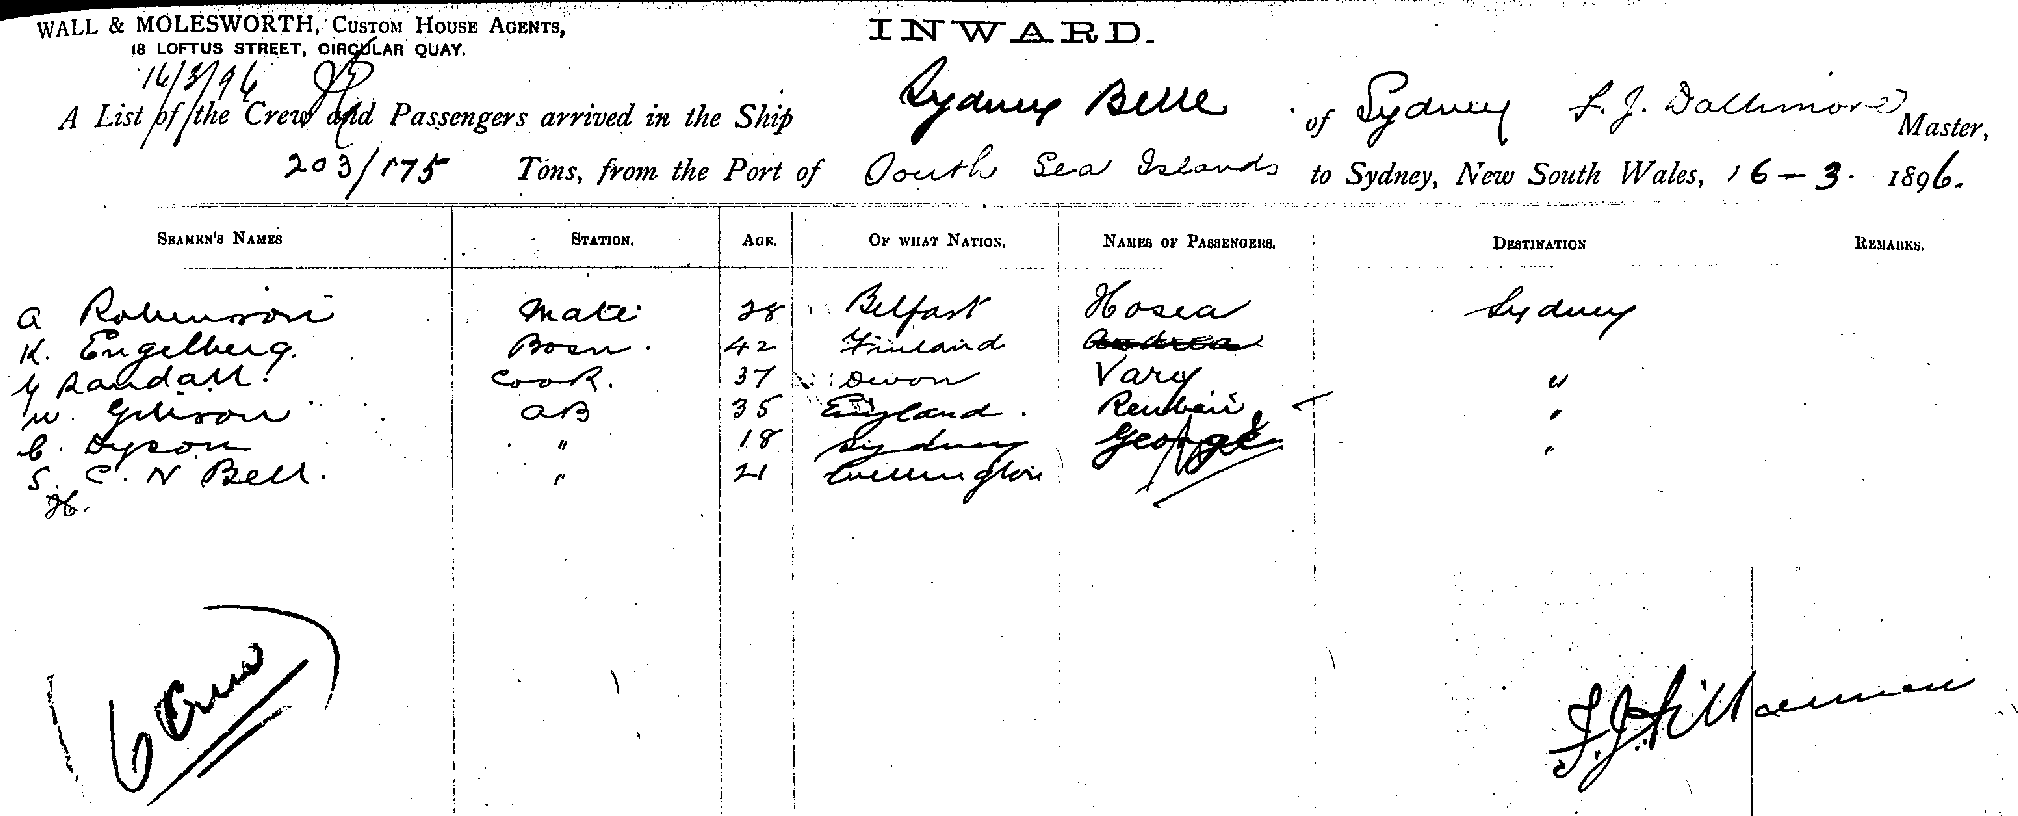 WALL & MOLESWORTH, CUSTOM HOUSE AGENTS,
18 LOFTUS STREET, CIRCULAR QUAY.
INWARD.
16/3/96
A List of the Crew and Passengers arrived in the Ship Sydney Belle of Sydney Master,
203/175 Tons, from the Port of South Sea Islands to Sydney, New South Wales, 16-3. 1896.
SEAMEN'S NAMES STATION. AGE. OF WHAT NATION. NAMES OF PASSENGERS. DESTINATION REMARKS.
A Robinson Mate 28 Belfast Hosea Sydney
K. Engelberg. Bosn. 42 Finland Andrea
Randall. Cook. 37 Devon Vary "
W. Gibson AB 35 England. Reuben "
C. Dyson " 18 Sydney George "
S. C. N Bell. " 21 Wellington
H.
6 Crew